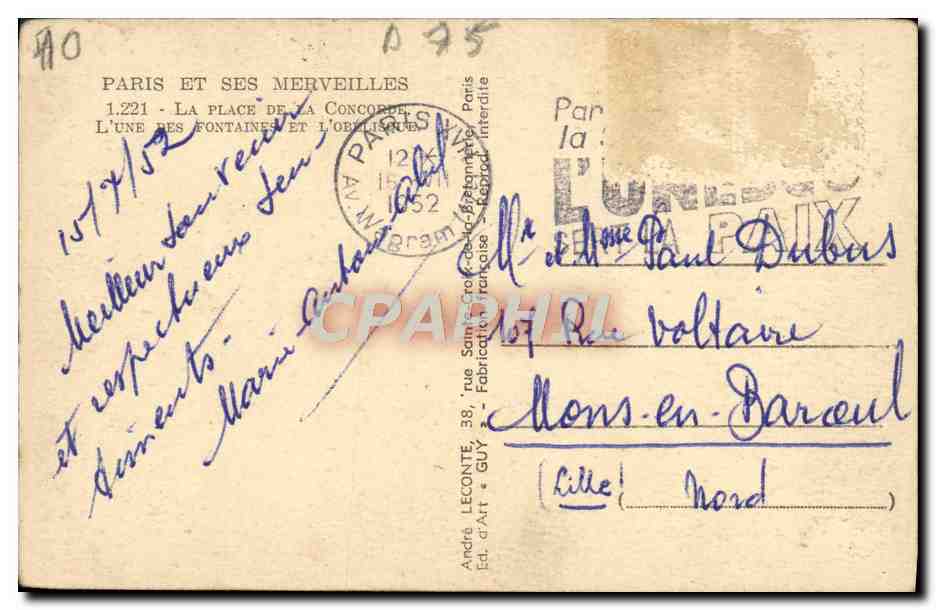 A0
D 75
PARIS ET SES MERVEILLES
1.221 - LA PLACE DE LA CONCORDE.
L'UNE DES FONTAINES ET L'OBELISQUE.
15/7/52
Meilleur souvenir
et respectueux sen-
timents.
Marie Antoinette
PARIS XVII
12
15 VII
1952
AV. Wagram
André LECONTE, 38, rue Sainte-Croix-de-la-Bretonnerie, Paris
Ed. d'Art « GUY » - Fabrication française - Reprod. interdite
Par
la
L'UNESCO
SERT LA PAIX
Mr et Mme Paul Dubus
107 Rue Voltaire
Mons-en-Baroeul
(Lille) Nord
CPAPHIL